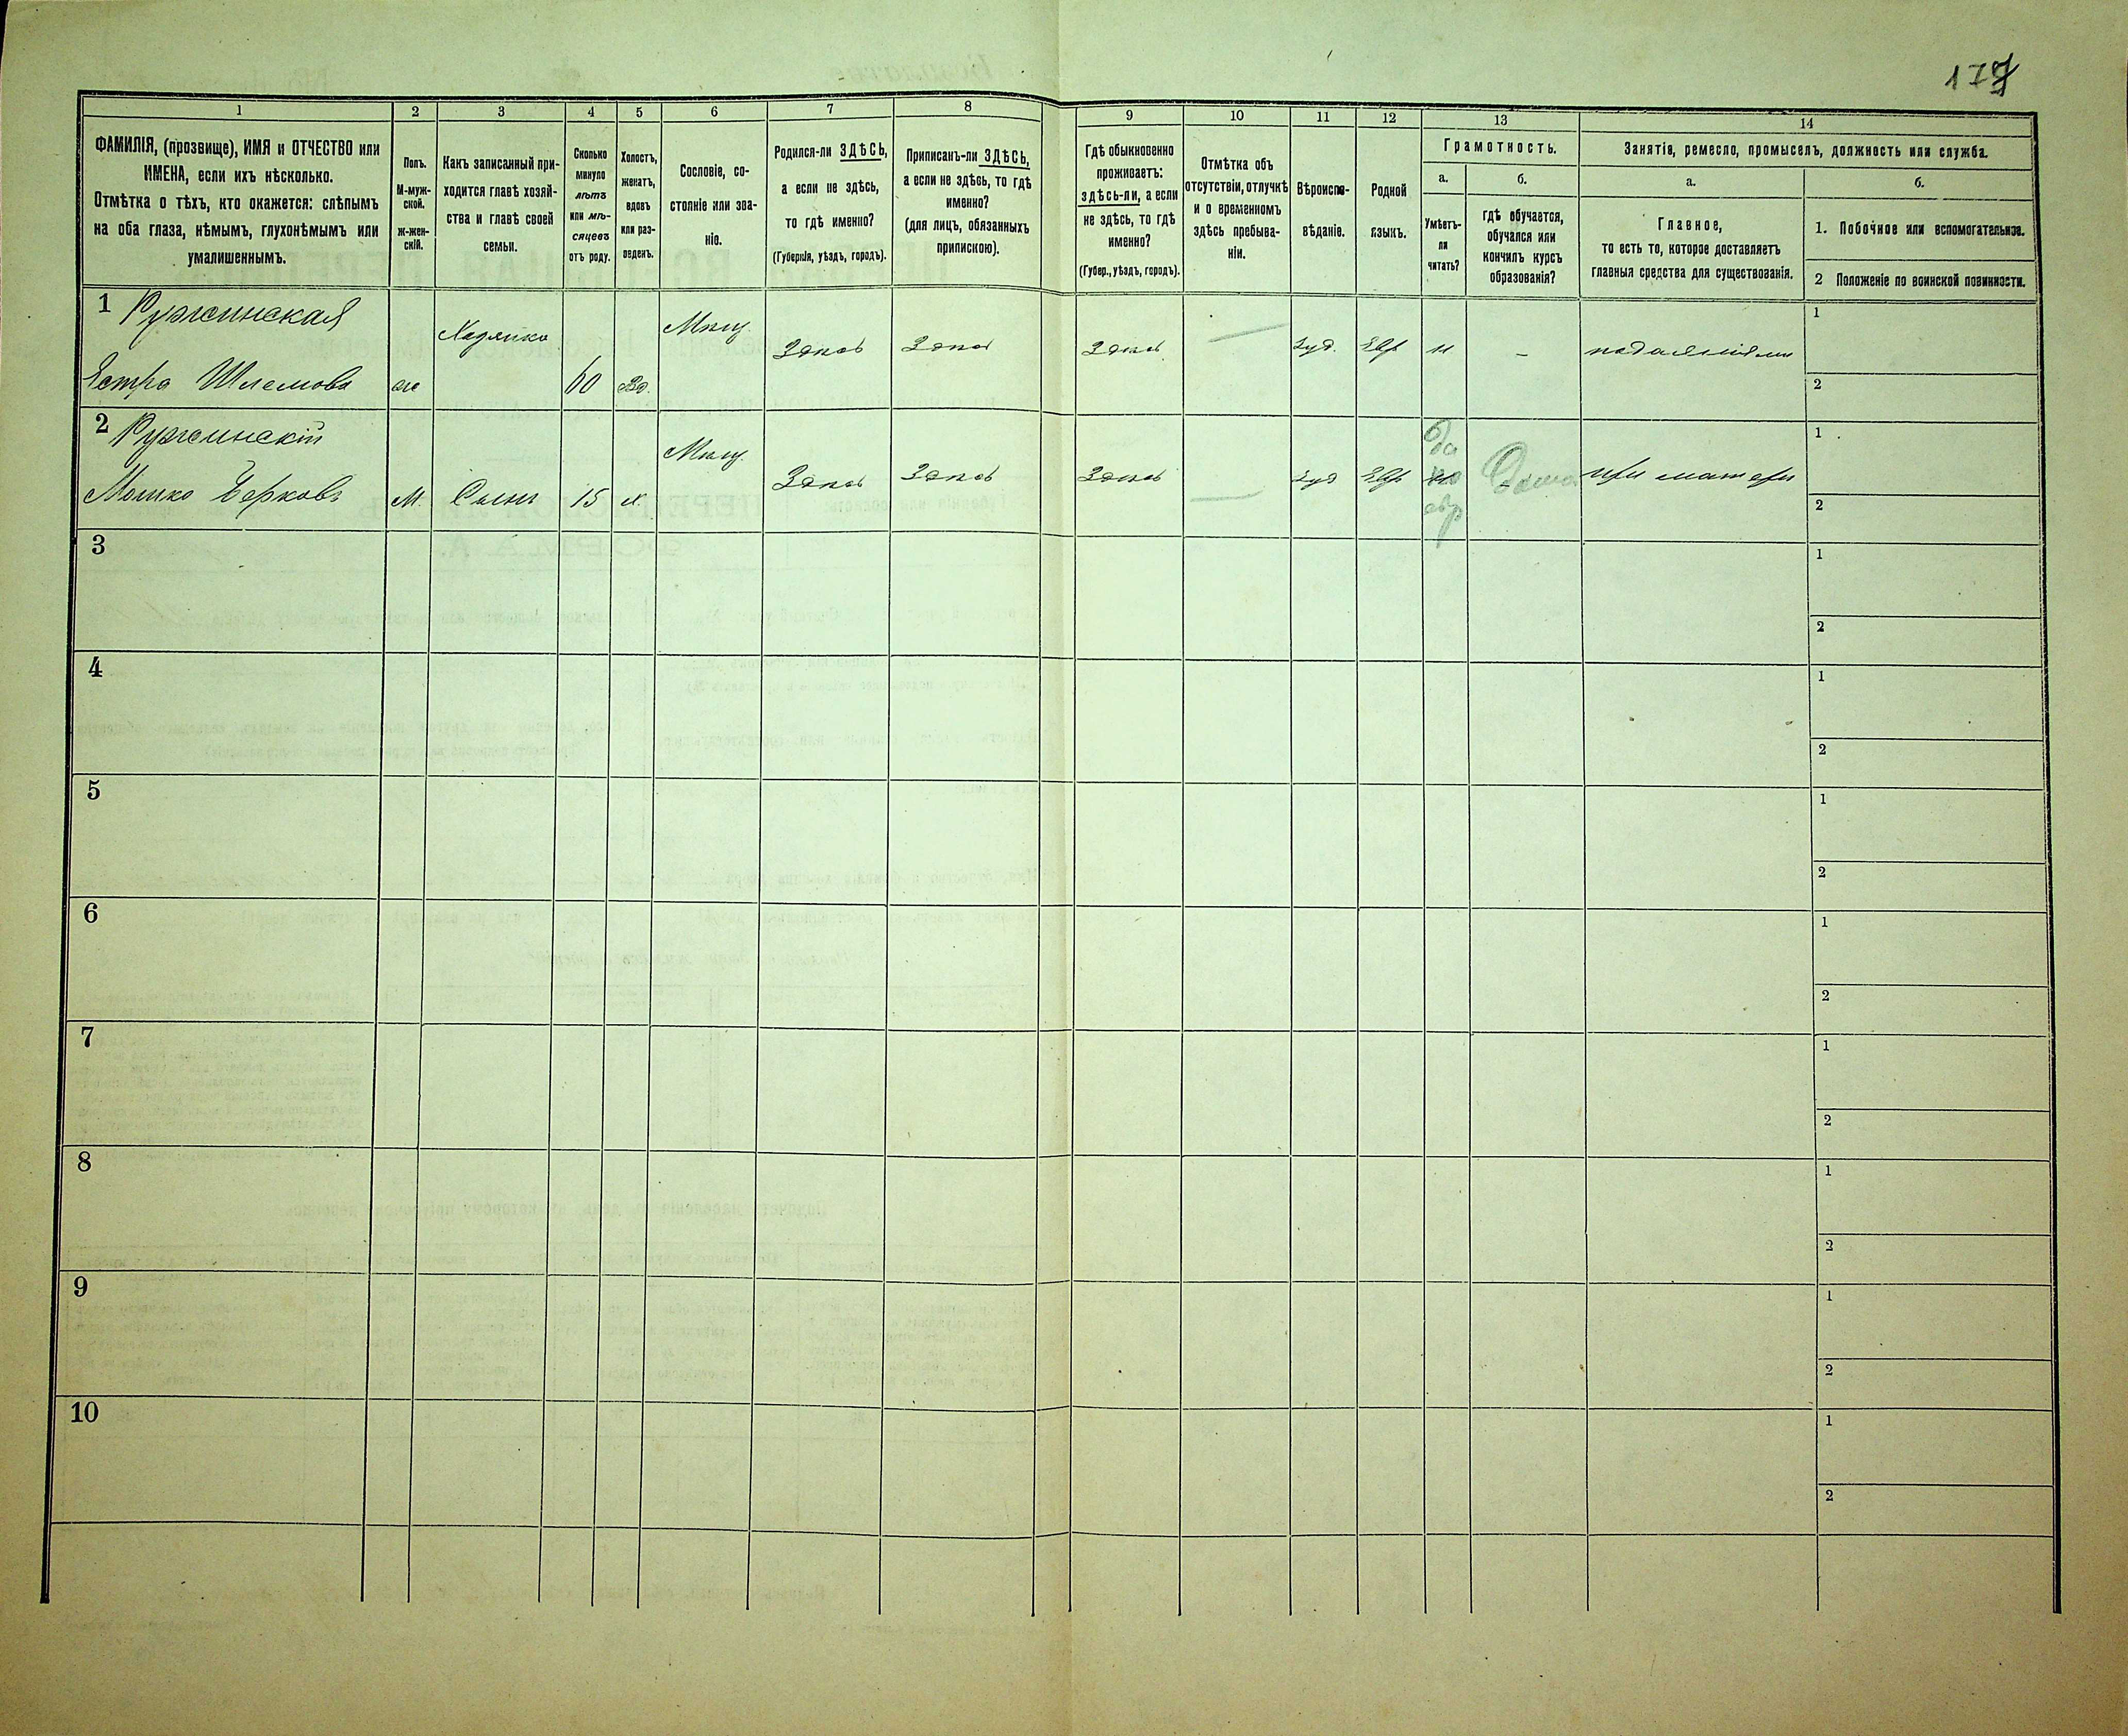 179
1
2
3
4
5
6
7
8
9
10
11
12
13
14
ФАМИЛІЯ, (прозвище), ИМЯ и ОТЧЕСТВО или
ИМЕНА, если ихъ нѣсколько.
Отмѣтка о тѣхъ, кто окажется: слѣпымъ
на оба глаза, нѣмымъ, глухонѣмымъ или
умалишеннымъ.
Полъ.
М-муж-
ской.
Ж-жен-
скій.
Какъ записанный при-
ходится главѣ хозяй-
ства и главѣ своей
семьи.
Сколько
минуло
лѣтъ
или мѣ-
сяцевъ
отъ роду.
Холостъ,
женатъ,
вдовъ
или раз-
веденъ.
Сословіе, со-
стояніе или зва-
ніе.
Родился-ли ЗДѢСЬ,
а если не здѣсь,
то гдѣ именно?
(Губернія, уѣздъ, городъ).
Приписанъ-ли ЗДѢСЬ,
а если не здѣсь, то гдѣ
именно?
(для лицъ, обязанныхъ
припискою).
Гдѣ обыкновенно
проживаетъ:
здѣсь-ли, а если
не здѣсь, то гдѣ
именно?
(Губер., уѣздъ, городъ).
Отмѣтка объ
отсутствіи, отлучкѣ
и о временномъ
здѣсь пребыва-
ніи.
Вѣроиспо-
вѣданіе.
Родной
языкъ.
Грамотность.
а.
Умѣетъ-
ли
читать?
б.
гдѣ обучается,
обучался или
кончилъ курсъ
образованія?
Занятіе, ремесло, промыселъ, должность или служба.
а.
Главное,
то есть то, которое доставляетъ
главныя средства для существованія.
б.
1. Побочное или вспомогательное.
2 Положеніе по воинской повинности.
1 Ружинская
Эстра Шлемова ж Хозяйка 60 Вд. Мѣщ. Здѣсь Здѣсь Здѣсь — Іуд. Евр н - подаяніями
1
2
2 Ружинскій
Мошко Берковъ М. Сынъ 15 х. Мѣщ. Здѣсь Здѣсь Здѣсь — Іуд Евр да по евр Дома при матери
1
2
3
1
2
4
1
2
5
1
2
6
1
2
7
1
2
8
1
2
9
1
2
10
1
2